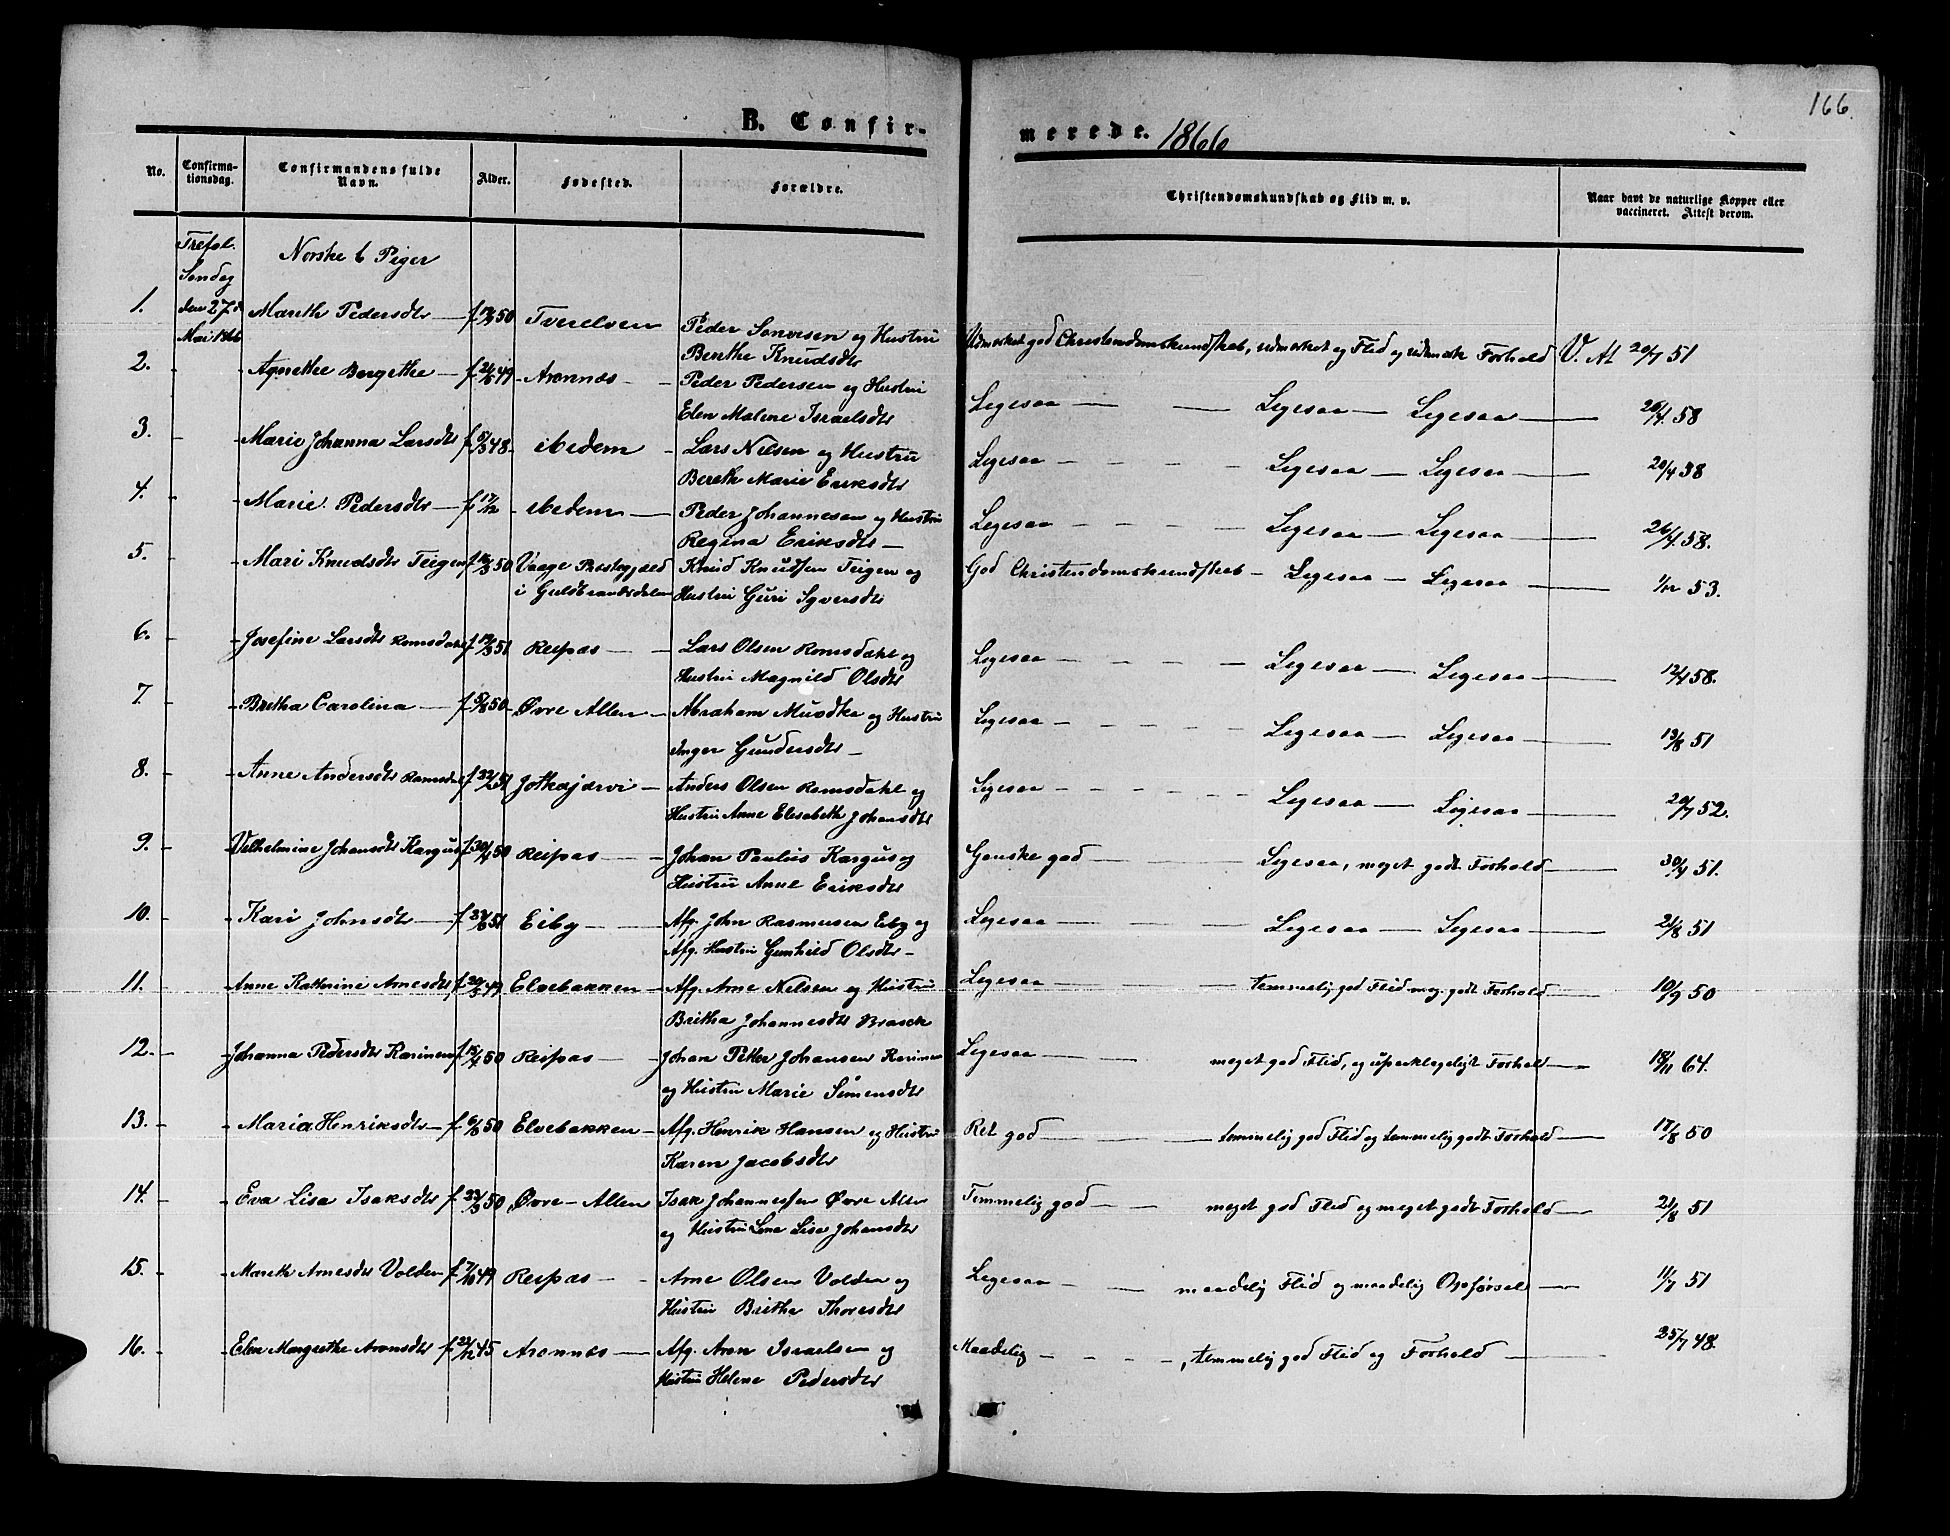 166.
B. Confir-
merede. 1866
No.
Confirma-
tionsdag.
Confirmandens fulde
Navn.
Alder.
Fødested.
Forældre.
Christendomskundskab og Flid m. v.
Naar havt de naturlige Kopper eller
vaccineret. Attest derom.
Trefol.
Søndag
den 27de
Mai 1866
Norske 6 Piger
1. Marethe Pedersdtr f. 50 Tverelven Peder Simonsen og Hustru
Berthe Knudsdtr
Udmærket god Christendomskundskab, udmærket og Flid og udmærk Forhold V. At 20/7 51
2. Agnethe Bergethe f. 49 Aronnæs Peder Pedersen og Hustru
Elen Malene Israelsdtr
Ligesaa Ligesaa Ligesaa 26/4 58
3. Marie Johanna Larsdtr f. 48 ibedem Lars Nilsen og Hustru
Bereth Marie Eriksdtr
Ligesaa Ligesaa Ligesaa 20/4 58
4. Marie Pedersdtr f. 17/12 ibedem Peder Johannesen og Hustru
Regina Eriksdtr
Ligesaa Ligesaa Ligesaa 26/4 58.
5. Mari Knudsdtr Teigen f. 50 Vaage Prestegjæld Knud Knudsen Teigen og
i Guldbrandsdalen Hustru Guri Syversdtr
God Christendomskundskab Ligesaa Ligesaa 53.
6. Josefine Larsdtr Romsdahl f. 51 Reipas Lars Olsen Romsdahl og
Hustru Magnild Olsdtr
Ligesaa Ligesaa Ligesaa 12/4 58.
7. Britha Carolina f. 50 Øvre Alten Abraham og Hustru
Inger Gundersdtr
Ligesaa Ligesaa Ligesaa 13/8 51
8. Anne Andersdtr Romsdal f. 51 Jotkajarvi Anders Olsen Romsdahl og
Hustru Anne Elisabeth Johansdtr
Ligesaa Ligesaa Ligesaa 20/7 52.
9. Vilhelmine Johansdtr Kargus f. 50 Reipas Johan Paulus Kargus og
Hustru Anne Eriksdtr
Ganske god Ligesaa, meget godt Forhold 30/7 51.
10. Kari Johnsdtr f. 51 Eiby Afg. John Rasmusen Eiby og
Afg. Hustru Gunhild Olsdtr
Ligesaa Ligesaa Ligesaa 21/8 51
11. Anne Kathrine Arnesdtr f. 49 Elvebakken Afg. Arne Nilsen og Hustru
Britha Johannesdtr Brasck
Ligesaa temmelig god Flid meg. godt Forhold 10/9 50
12. Johanna Pedersdtr Karinen f. 50 Reipas Johan Petter Johansen Karinen
og Hustru Marie Simensdtr
Ligesaa meget god Flid, og upaaklageligt Forhold 18/11 64.
13. Maria Henriksdtr f. 50 Elvebakken Afg. Henrik Hansen og Hustru
Karen Jacobsdtr
Ret god temmelig god Flid og temmelig godt Forhold 17/8 50
14. Eva Lisa Isaksdtr f. 50 Øvre-Alten Isak Johannessen Øvre Alten
og Hustru Lena Lisa Johansdtr
Temmelig god meget god Flid og meget godt Forhold 21/8 51
15. Mareth Arnesdtr Volden f. 7/10 49 Reipas Arne Olsen Volden og
Hustru Britha Thoresdtr
Ligesaa maadelig Flid og maadelig Opførsel 11/7 51
16. Elen Margrethe Aronsdtr f. 22/12 45 Aronnæs Afg. Aron Israelsen og
Hustru Helene Pedersdtr
Maadelig , temmelig god Flid og Forhold 25/7 48.